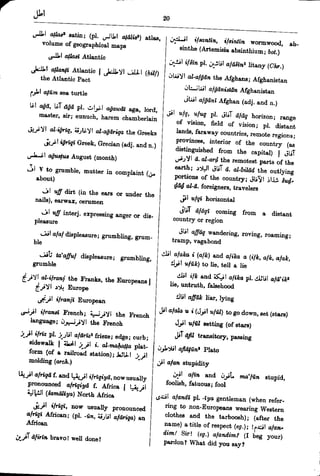 اطل
20
اطلس aṭlas² satin; (pl. اطالس aṭālis²) atlas,
volume of geographical maps
اطلسي aṭlasī Atlantic
اطلنطي aṭlanṭī Atlantic | الحلف الاطلنطي (ḥilf)
the Atlantic Pact
اطوم aṭūm sea turtle
اغا aḡā, آغا āḡā pl. اغوات aḡawāt aga, lord,
master, sir; eunuch, harem chamberlain
الاغريق al-iḡrīq, الاغارقة al-aḡāriqa the Greeks
اغريقي iḡrīqī Greek, Grecian (adj. and n.)
اغسطس aḡusṭus August (month)
to grumble, mutter in complaint (من
about)
اف uff dirt (in the ears or under the
nails), earwax, cerumen
اف uff interj. expressing anger or dis-
pleasure
افف afaf displeasure; grumbling, grum-
ble
تأفف ta'affuf displeasure; grumbling,
grumble
الافرنج al-ifranj the Franks, the Europeans |
بلاد الافرنج Europe
افرنجي ifranjī European
افرنسي ifransī French; الافرنسية the French
language; الافرنسيون the French
افريز ifrīz pl. افاريز afārīz² frieze; edge; curb;
sidewalk | افريز المحطة i. al-maḥaṭṭa plat-
form (of a railroad station); افريز الحائط
molding (arch.)
افريقا afrīqā f. and افريقية ifrīqiyā, now usually
pronounced afrīqiyā f. Africa | افريقية
الشمالية (šamālīya) North Africa
افريقي ifrīqī, now usually pronounced
afrīqī African; (pl. -ūn, افارقة afāriqa) an
African
آفرين āfirīn bravo! well done!
افسنتين ifsantīn, ifsintīn wormwood, ab-
sinthe (Artemisia absinthium; bot.)
افشين ifšīn pl. افاشين afāšīn² litany (Chr.)
الافغان al-afḡān the Afghans; Afghanistan
افغانستان afḡānistān Afghanistan
افغاني afḡānī Afghan (adj. and n.)
افق ufq, ufuq pl. آفاق āfāq horizon; range
of vision, field of vision; pl. distant
lands, faraway countries, remote regions;
provinces, interior of the country (as
distinguished from the capital) | آفاق
الارض ā. al-arḍ the remotest parts of the
earth; آفاق البلاد ā. al-bilād the outlying
portions of the country; شذاذ الآفاق šuḏ-
ḏāḏ al-ā. foreigners, travelers
افقي ufuqī horizontal
آفاقي āfāqī coming from a distant
country or region
افاق affāq wandering, roving, roaming;
tramp, vagabond
افك afaka i (afk) and afika a (ifk, afk, afak,
افوك ufūk) to lie, tell a lie
افك ifk and افيكة afīka pl. افائك afā'ik²
lie, untruth, falsehood
افاك affāk liar, lying
افل afala u i (افول ufūl) to go down, set (stars)
افول ufūl setting (of stars)
آفل āfil transitory, passing
افلاطون aflāṭūn² Plato
افن afan stupidity
افين afīn and مأفون ma'fūn stupid,
foolish, fatuous; fool
افندي afandī pl. -īya gentleman (when refer-
ring to non-Europeans wearing Western
clothes and the tarboosh); (after the
name) a title of respect (eg.); افندم afan-
dim! Sir! (eg.) afandim? (I beg your)
pardon? What did you say?